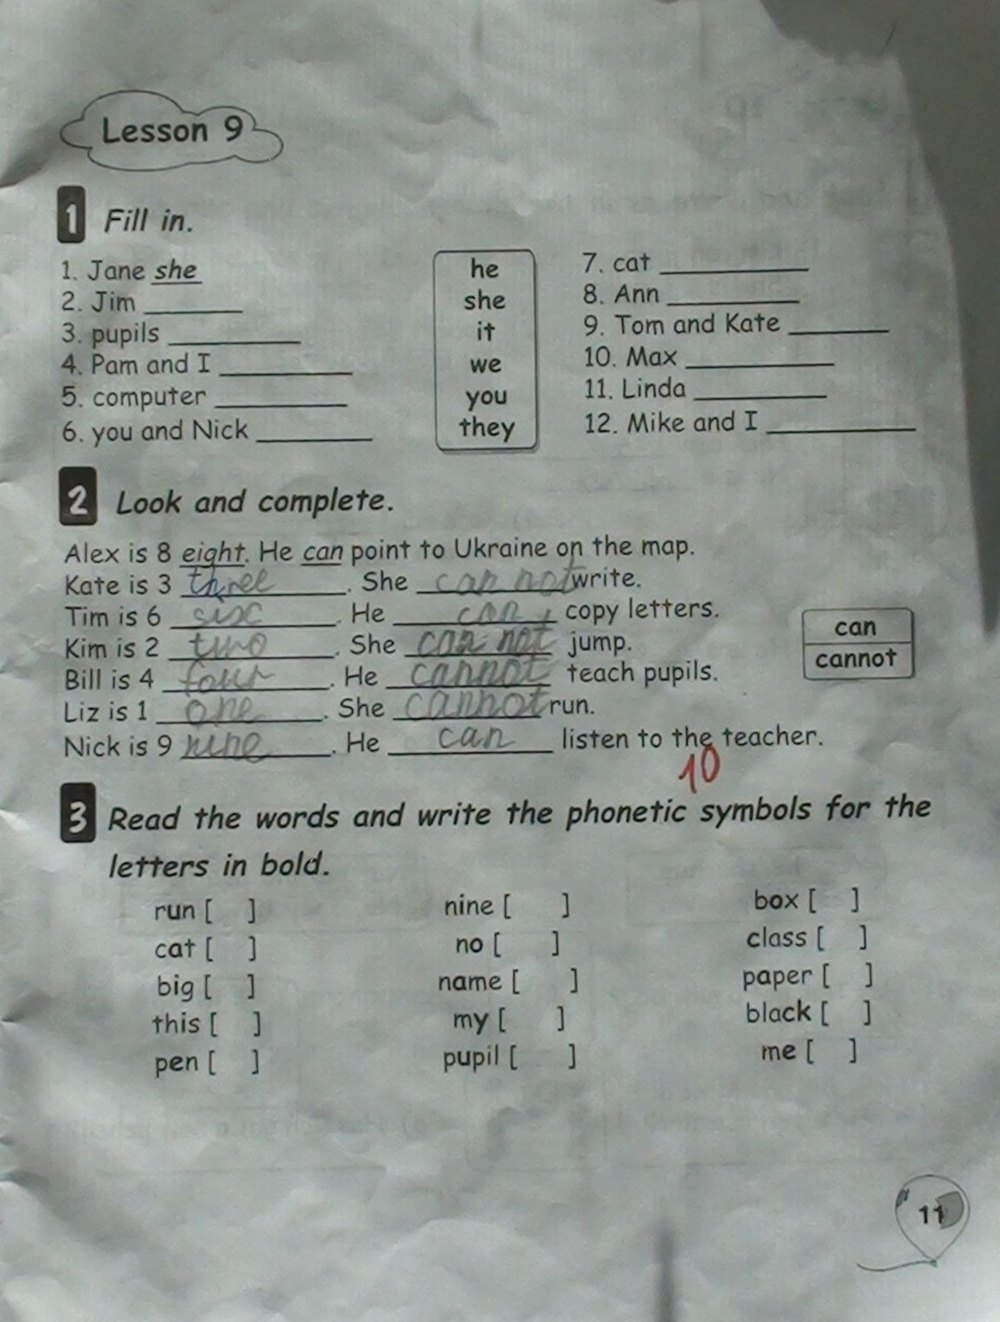 Lesson 9
1 Fill in.
1. Jane she
2. Jim ________
3. pupils ________
4. Pam and I ________
5. computer ________
6. you and Nick ________
he
she
it
we
you
they
7. cat ________
8. Ann ________
9. Tom and Kate ________
10. Max ________
11. Linda ________
12. Mike and I ________
2 Look and complete.
Alex is 8 eight. He can point to Ukraine on the map.
Kate is 3 three. She can not write.
Tim is 6 six. He can copy letters.
Kim is 2 two. She can not jump.
Bill is 4 four. He cannot teach pupils.
Liz is 1 one. She cannot run.
Nick is 9 nine. He can listen to the teacher.
can
cannot
10
3 Read the words and write the phonetic symbols for the
letters in bold.
run [ ]
cat [ ]
big [ ]
this [ ]
pen [ ]
nine [ ]
no [ ]
name [ ]
my [ ]
pupil [ ]
box [ ]
class [ ]
paper [ ]
black [ ]
me [ ]
11